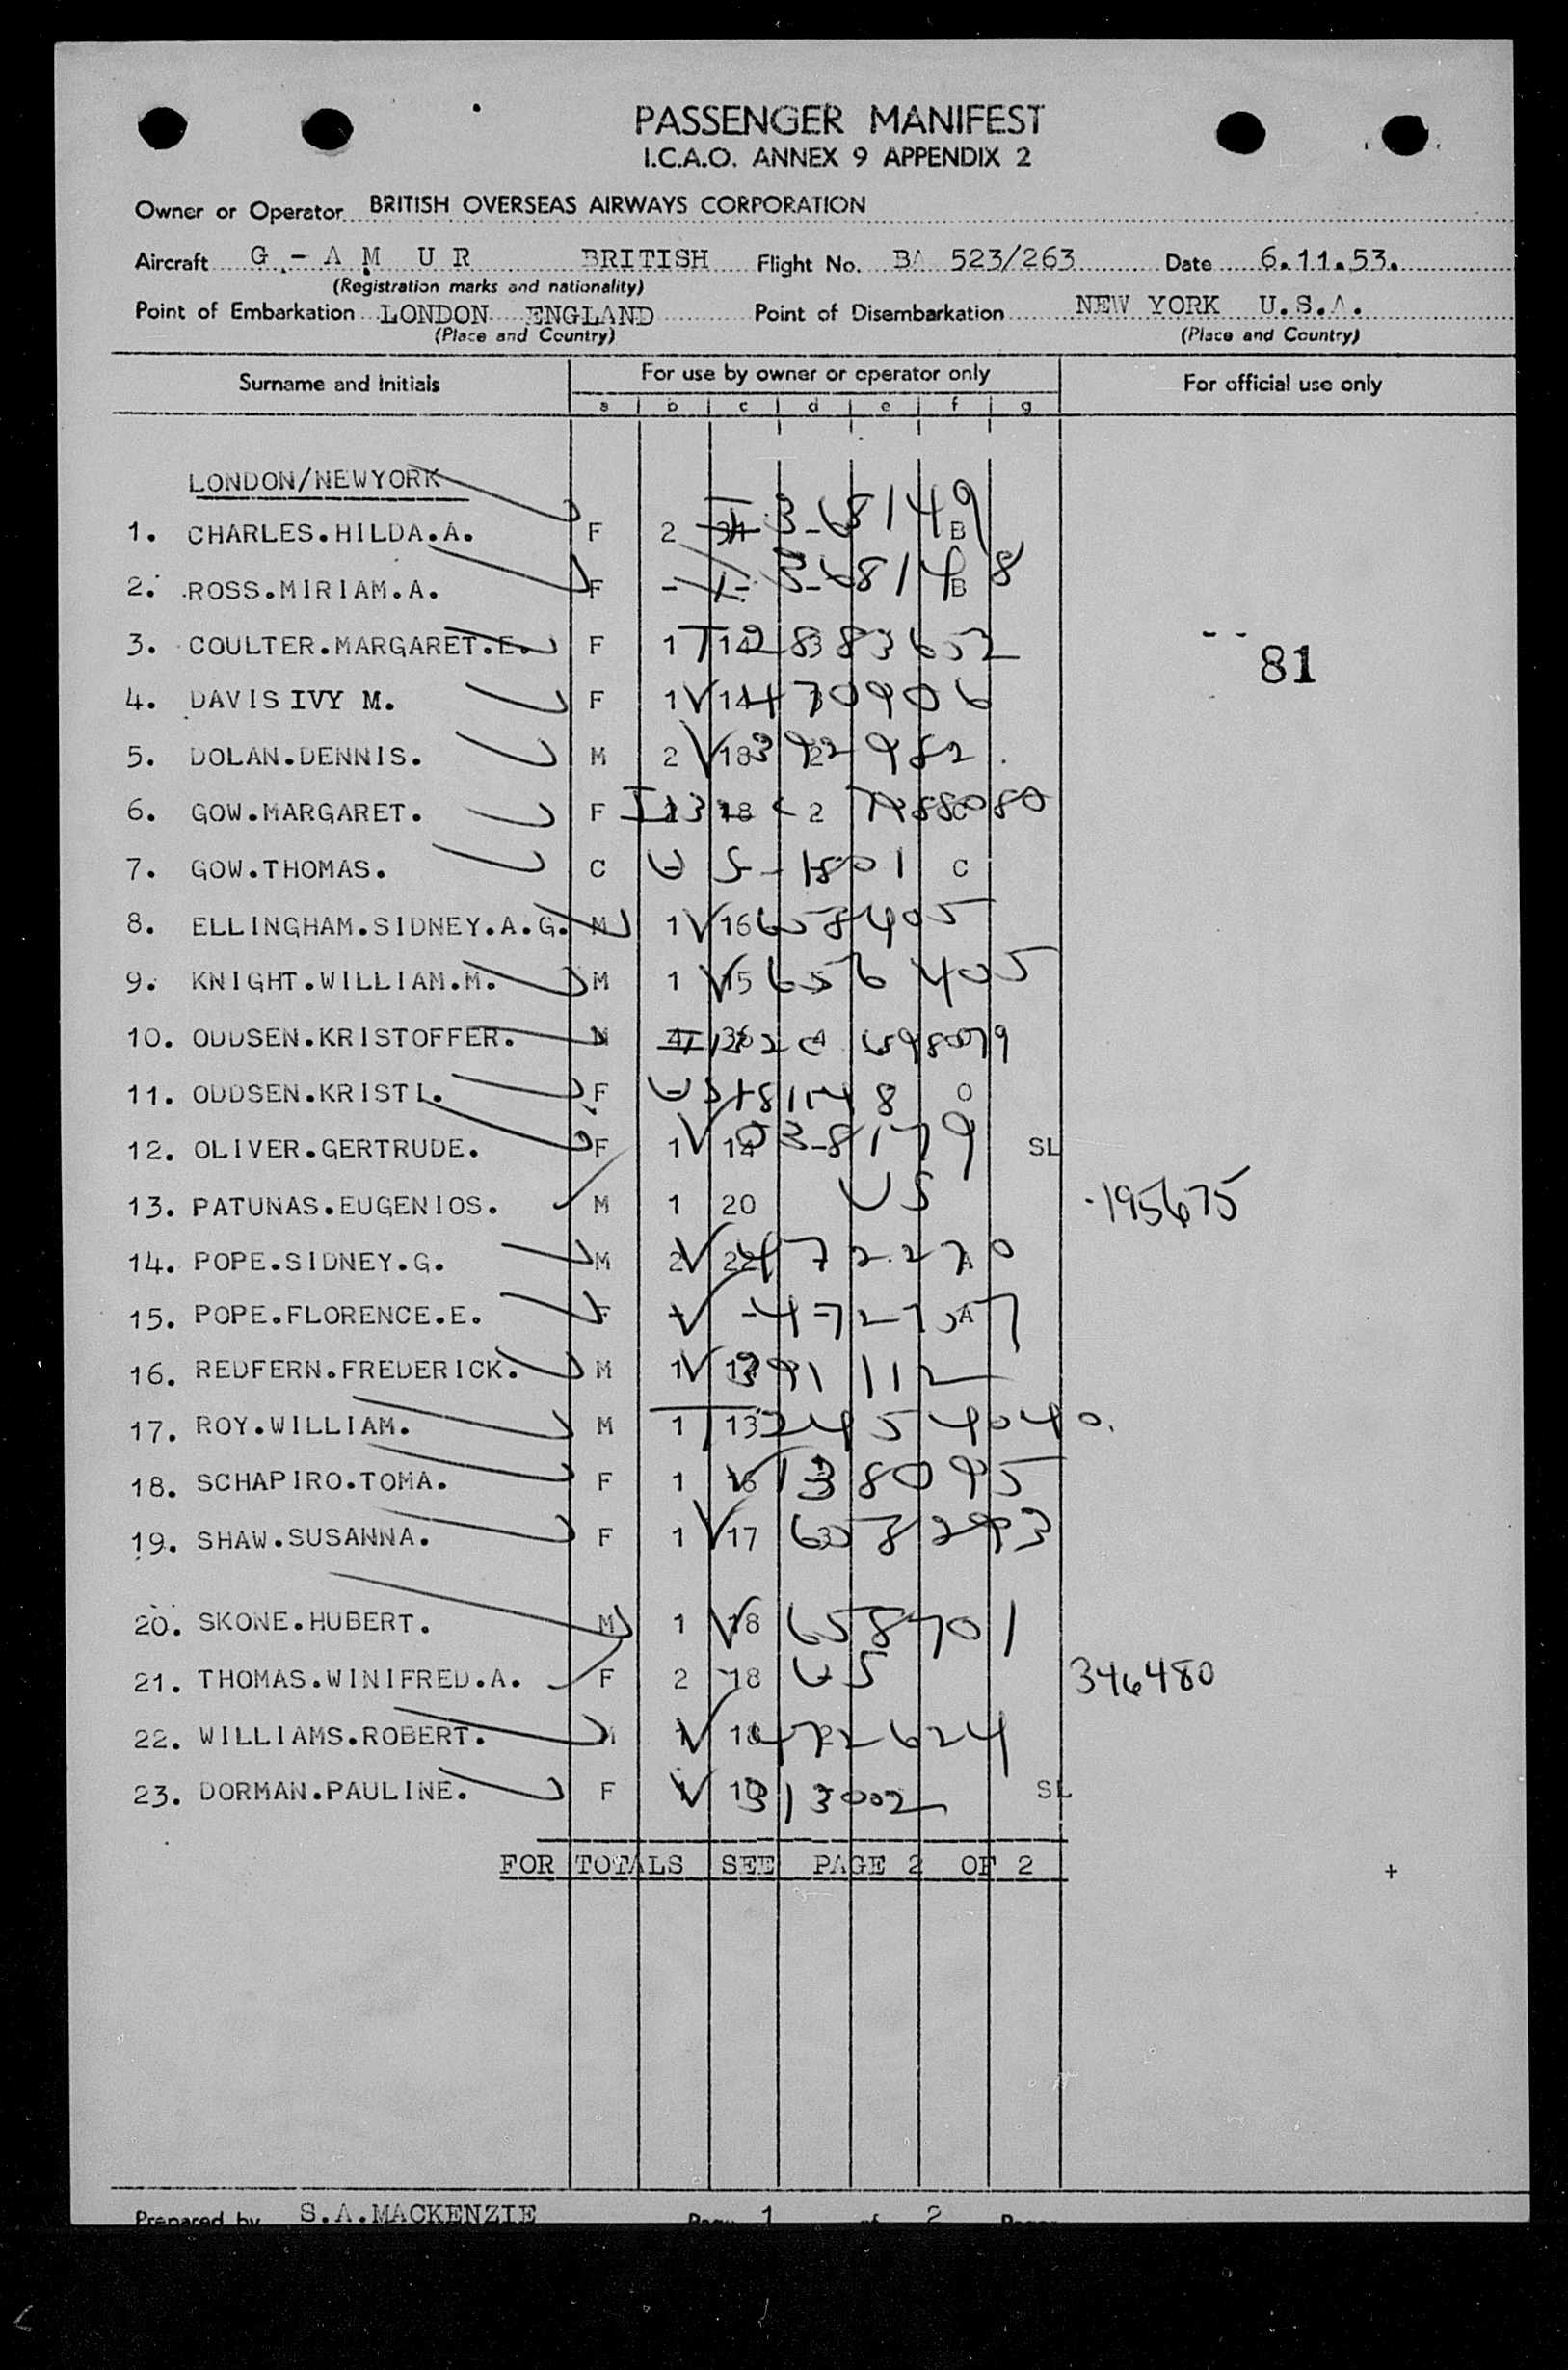 PASSENGER MANIFEST
I.C.A.O. ANNEX 9 APPENDIX 2
Owner or Operator BRITISH OVERSEAS AIRWAYS CORPORATION
Aircraft G.- A M U R BRITISH Flight No. BA 523/263 Date 6.11.53.
(Registration marks and nationality)
Point of Embarkation LONDON ENGLAND Point of Disembarkation NEW YORK U.S.A.
(Place and Country) (Place and Country)
Surname and Initials For use by owner or operator only For official use only
a b c d e f g
LONDON/NEWYORK
1. CHARLES.HILDA.A. F 2 3-68149 B
2. ROSS.MIRIAM.A. F - 3-68148 B
3. COULTER.MARGARET.E. F 1 12 8383652
81
4. DAVIS IVY M. F 1 14 470906
5. DOLAN.DENNIS. M 2 18 392982
6. GOW.MARGARET. F 18 2 C
7. GOW.THOMAS. C US-1801 C
8. ELLINGHAM.SIDNEY.A.G. M 1 16 658405
9. KNIGHT.WILLIAM.M. M 1 15 656405
10. ODDSEN.KRISTOFFER. M
11. ODDSEN.KRISTI. F 8
12. OLIVER.GERTRUDE. F 1 14 3-8179 SL
13. PATUNAS.EUGENIOS. M 1 20 US 195675
14. POPE.SIDNEY.G. M 2 22 472270 A
15. POPE.FLORENCE.E. F - A
16. REDFERN.FREDERICK. M 1 391112
17. ROY.WILLIAM. M 1 13 2454040.
18. SCHAPIRO.TOMA. F 1 16 138095
19. SHAW.SUSANNA. F 1 17 658293
20. SKONE.HUBERT. M 1 18 658701
21. THOMAS.WINIFRED.A. F 2 18 US 346480
22. WILLIAMS.ROBERT. M 1 18 472624
23. DORMAN.PAULINE. F 1 313002 SL
FOR TOTALS SEE PAGE 2 OF 2
+
Prepared by S.A.MACKENZIE Page 1 of 2 Pages